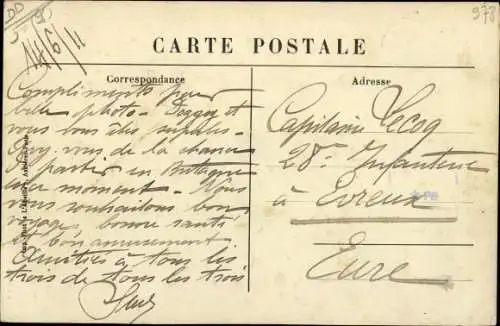 DD
977
14/6/11
CARTE POSTALE
Correspondance
Adresse
Compliments pour
belle photo - Doggy et
vous bons
vous de la chance
de partir en Bretagne
ce moment - Nous
vous souhaitons bon
voyage, bonne santé
et bon amusement
Amitiés à tous les
trois de tous les trois
Capitaine Lecoq
28e Infanterie
à Evreux
Eure